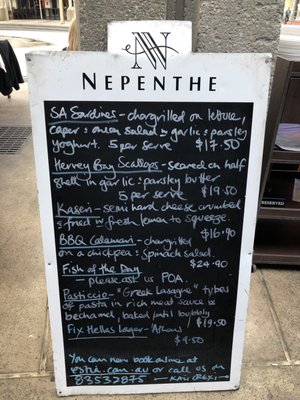 N
NEPENTHE
SA Sardines - chargrilled on lettuce,
caper & onion salad w garlic & parsley
yoghurt. 5 per serve $17.50
Hervey Bay Scallops - seared on half
shell in garlic & parsley butter
5 per serve $19.50
Kaseri - semi hard cheese crumbed
& fried w fresh lemon to squeeze.
$16.90
BBQ Calamari - chargrilled
on a chickpea & spinach salad.
$24.90
Fish of the Day
- please ask us POA.
Pasticcio - "Greek Lasagne" tubes
of pasta in rich meat sauce &
bechamel, baked until bubbly
$19.50
Fix Hellas Lager -
$9.50
You can now book online at
estia.com.au or call us on
83532875
RESERVED